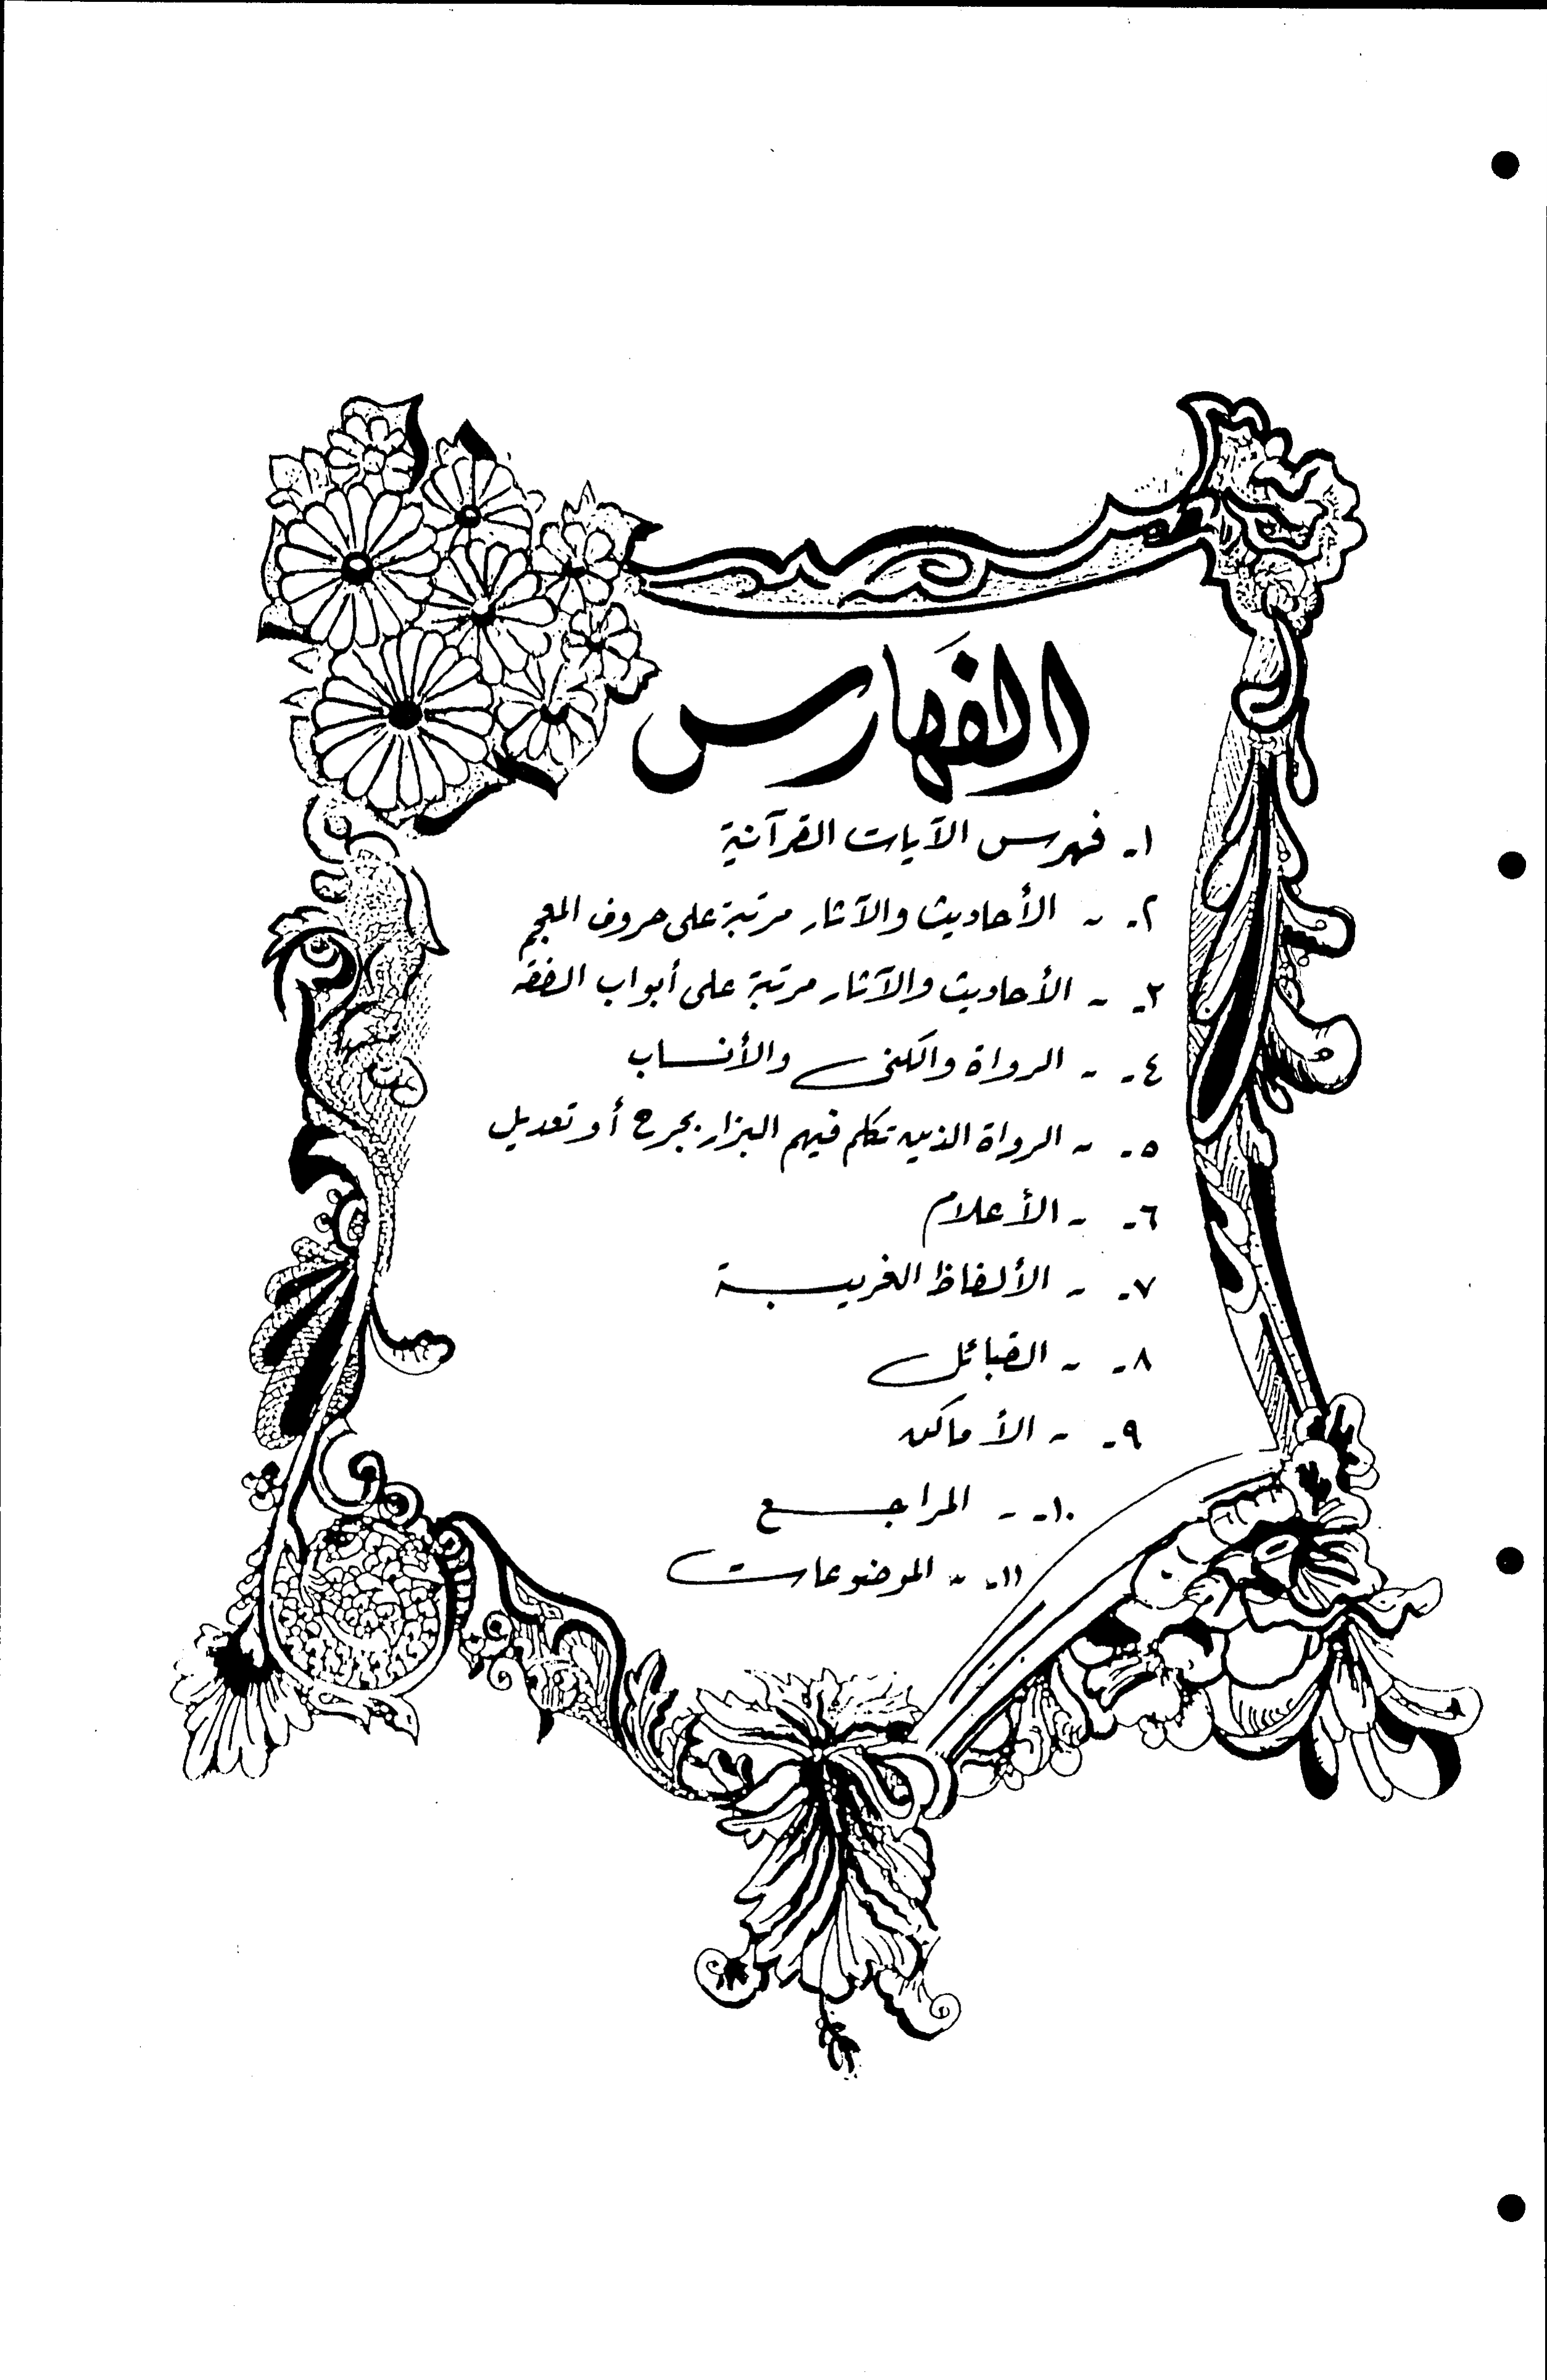 الفَهارس
١- فهرس الآيات القرآنية
٢- ~ الأحاديث والآثار مرتبة على حروف المعجم
٣- ~ الأحاديث والآثار مرتبة على أبواب الفقه
٤- ~ الرواة والكنى والأنساب
٥- ~ الرواة الذين تكلم فيهم البزار بجرح أو تعديل
٦- ~ الأعلام
٧- ~ الألفاظ الغريبة
٨- ~ القبائل
٩- ~ الأماكن
١٠- ~ المراجع
١١- ~ الموضوعات